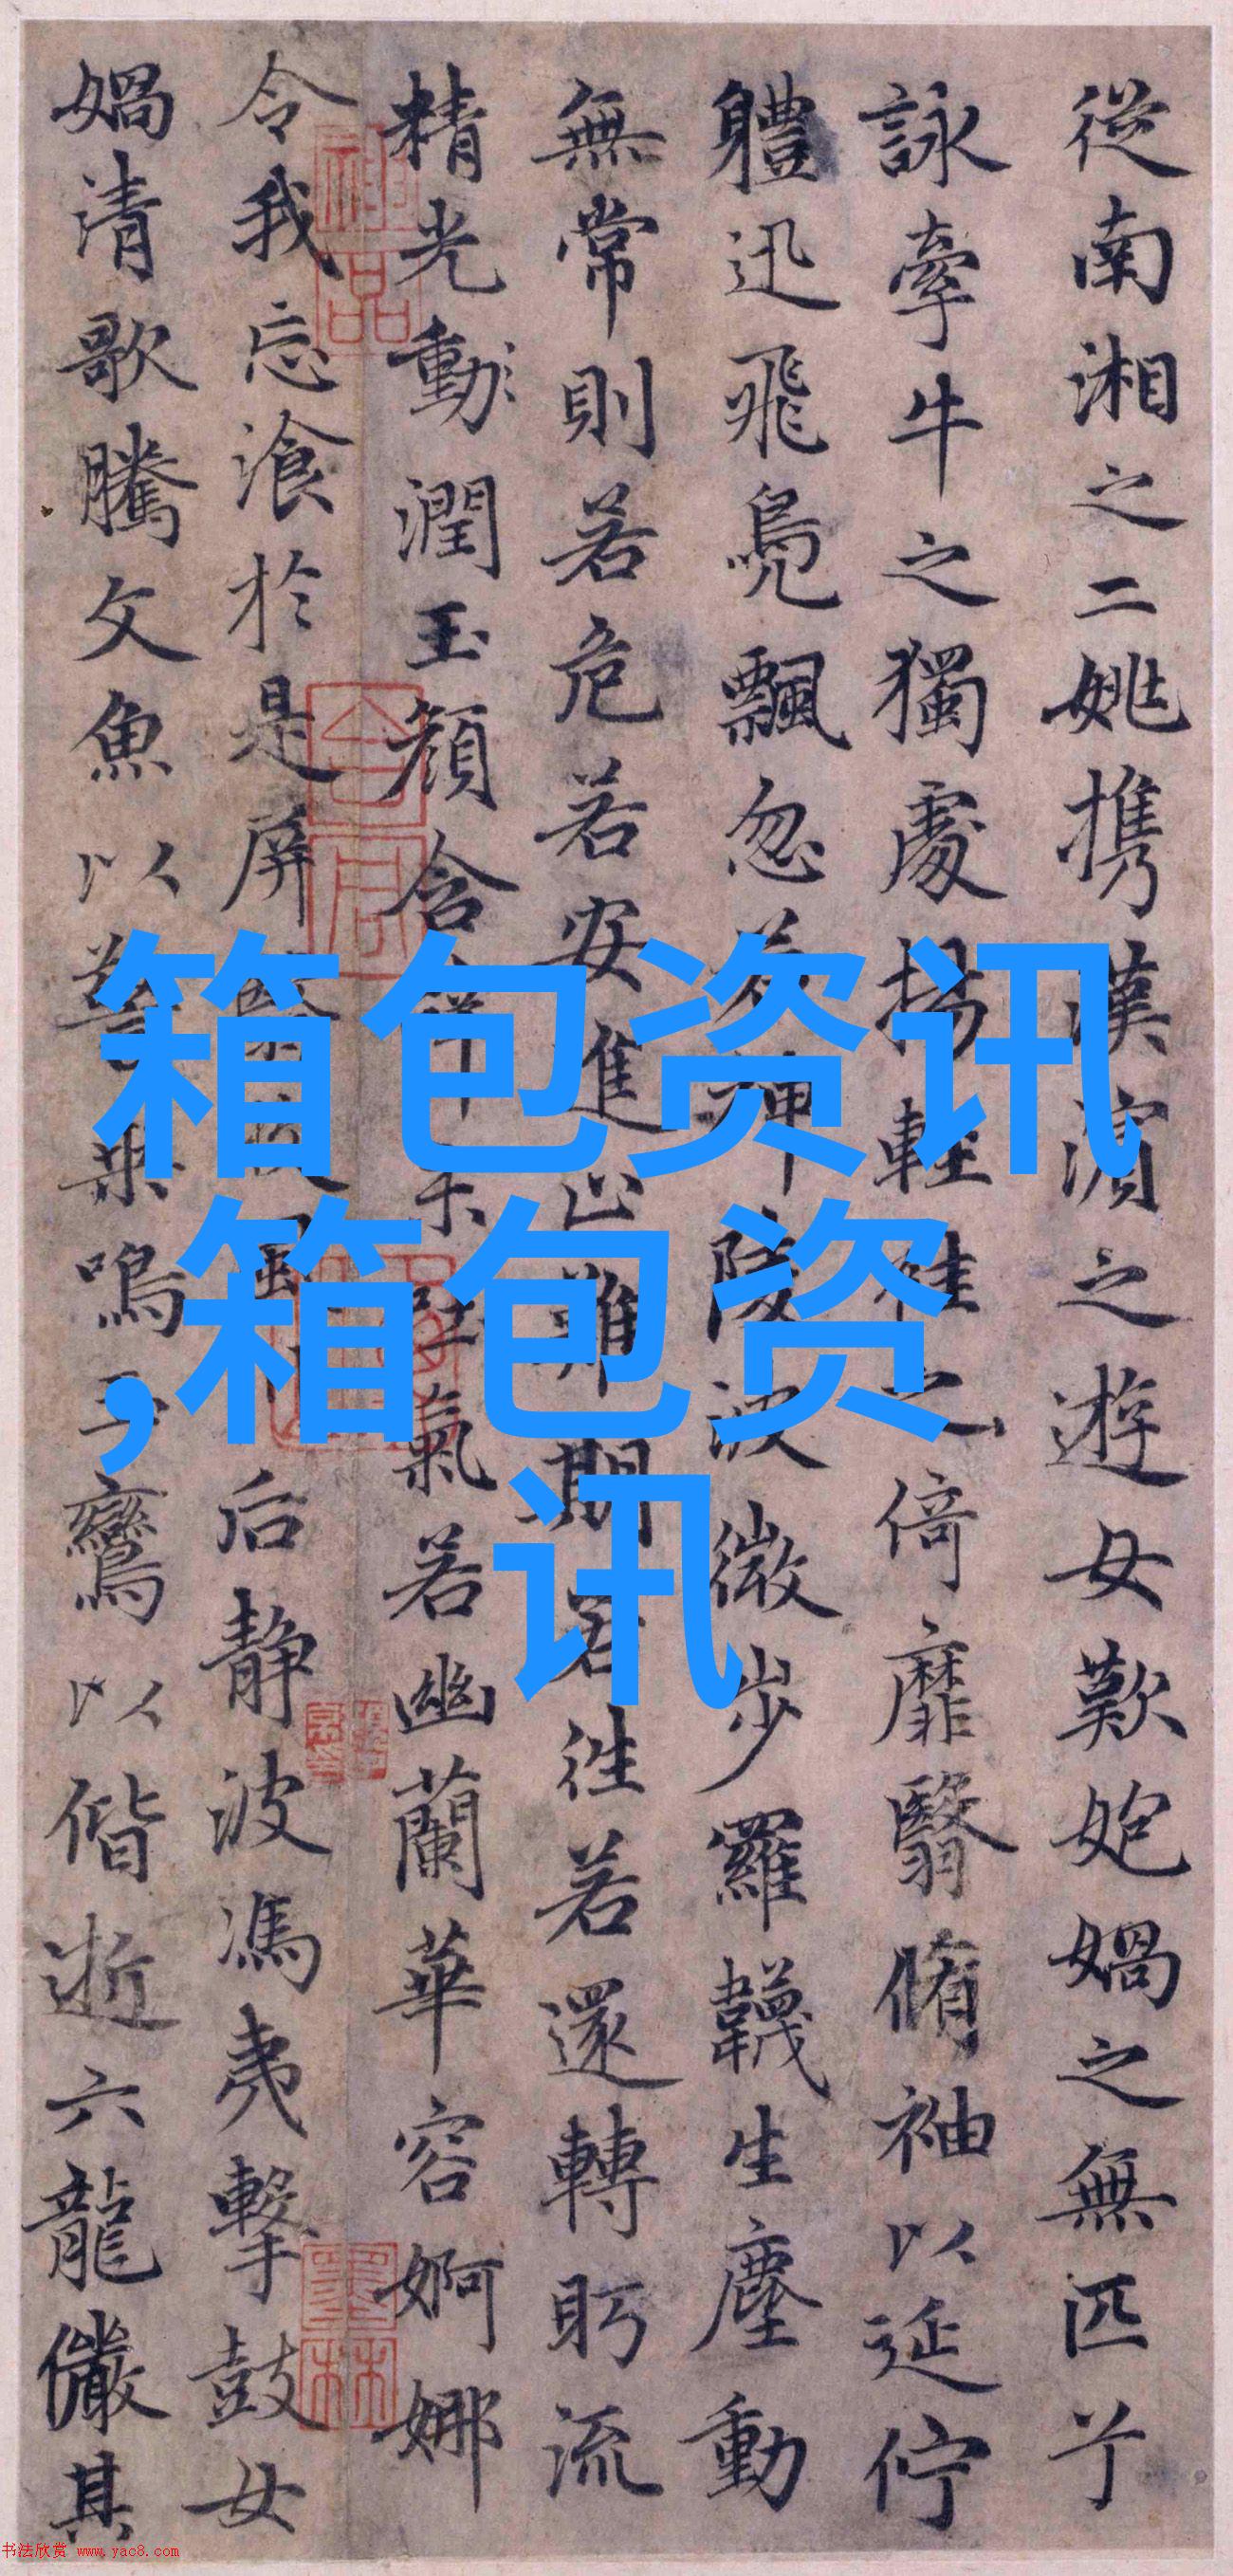 從南湘之二姚携漢濱之遊女歎㚿媧之無匹兮
詠牽牛之獨處揚輕袿之倚靡翳脩袖以延佇
軆迅飛鳧飄忽若神陵波微步羅韈生塵動
無常則若危若安進止難期若往若還轉眄流
精光動潤玉顏含辭未吐氣若幽蘭華容婀娜
令我忘湌於是屏翳收風川后静波馮夷擊鼓女
媧清歌騰文魚以警乘鳴玉鸞以偕逝六龍儼其
神品
墨林
箱包资讯
,箱包资
讯
书法欣赏 www.yac8.com